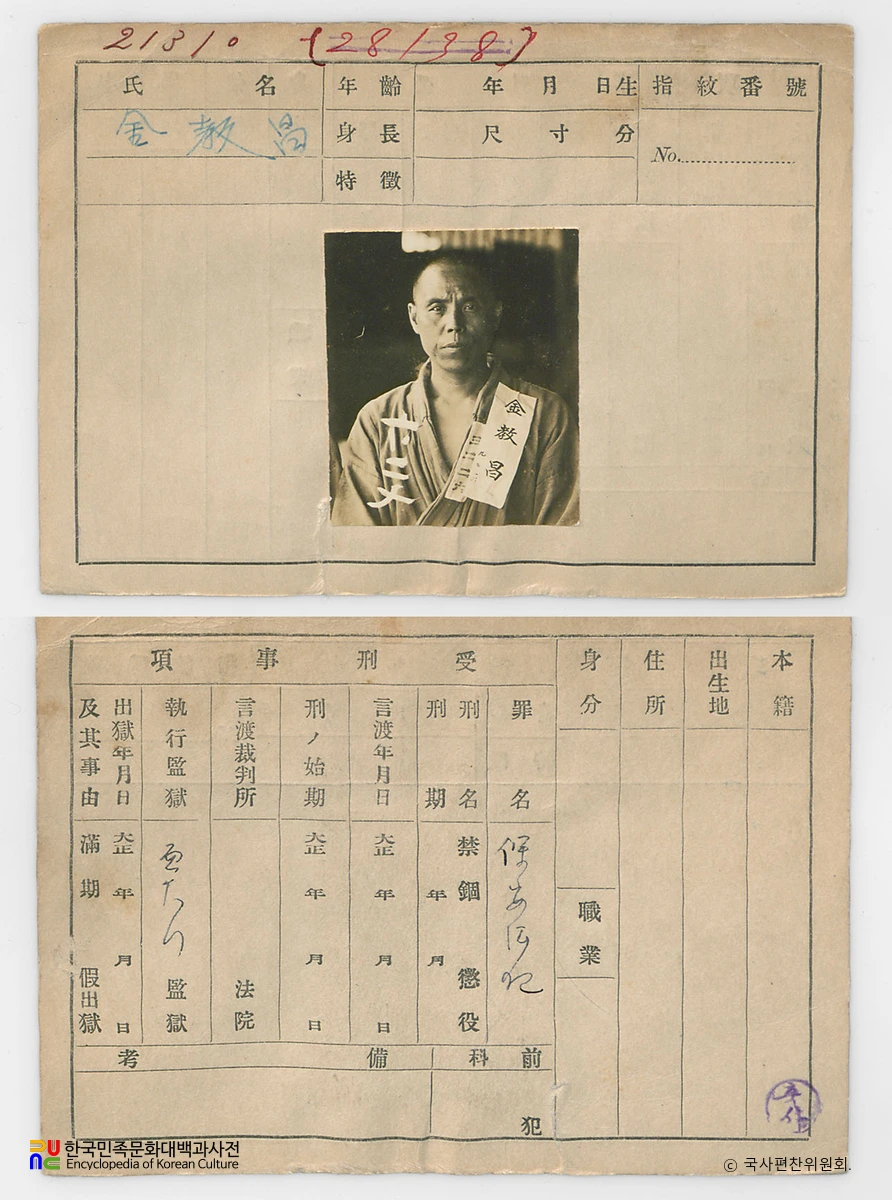 21310 (28138)
氏名 年齡 年月日生 指紋番號
金教昌 身長 尺寸分
No.
特徵
金教昌
本籍
出生地
住所
身分
職業
受刑事項
罪名
保安法犯
刑名 禁錮 懲役
刑期 年月
言渡年月日 大正 年月日
刑ノ始期 大正 年月日
言渡裁判所 法院
執行監獄 監獄
出獄年月日 大正 年月日
及其事由 滿期 假出獄
前科 犯
備考
한국민족문화대백과사전
Encyclopedia of Korean Culture
© 국사편찬위원회.